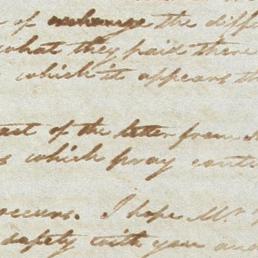 of exchange the diff
what they paid there
which it appears th
ast of the letter from
which pray cont
occurs. I hope Mr
safety with you and